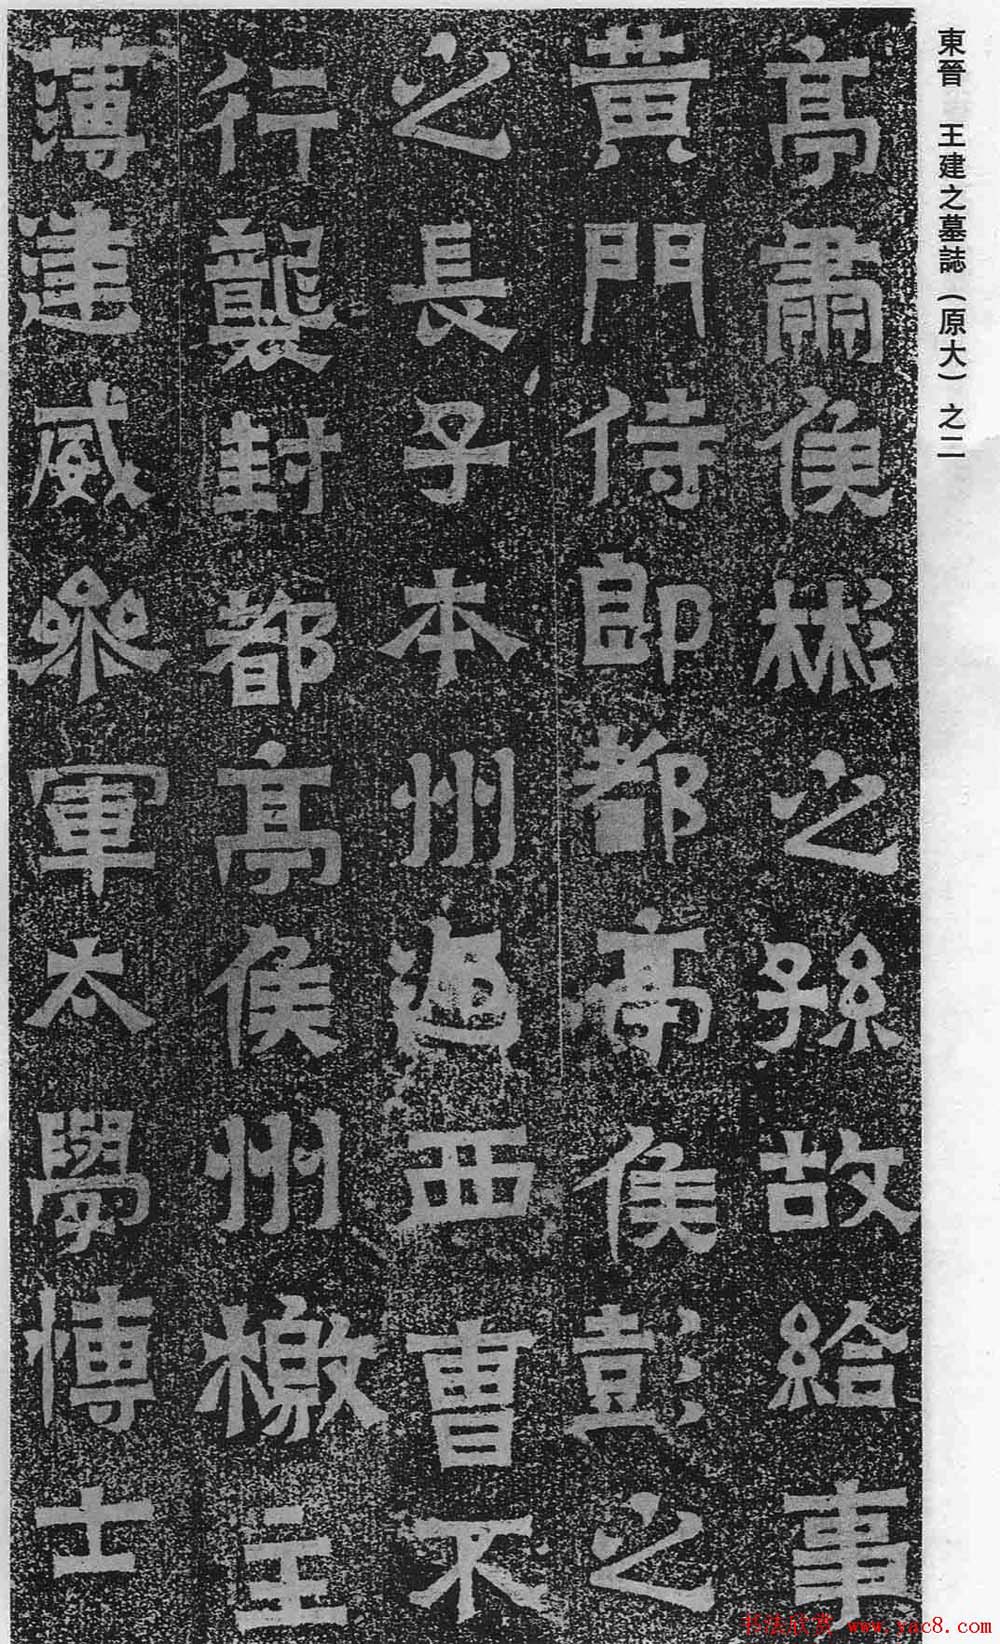 東晉 王建之墓誌（原大）之二
亭肅侯彬之孫故給事
黃門侍郎都亭侯彭之
之長子本州迎西曹不
行襲封都亭侯州檄主
薄建威參軍太學博士
书法欣赏 www.yac8.com